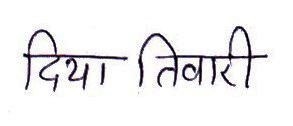 दिया तिवारी